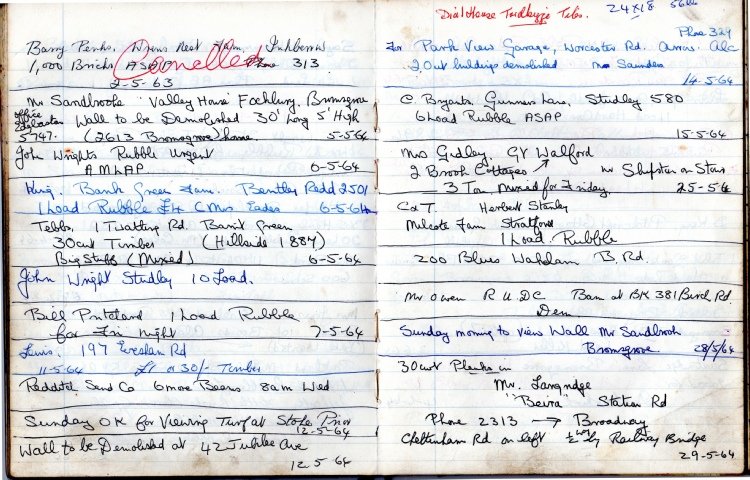 Barry Penks. Wrens Nest Farm. Inkberrow
1,000 Bricks ASAP Phone 313
Cancelled
2-5-63
Mr Sandbrook "Valley House" Fockbury. Bromsgrove
office Wall to be Demolished 30' Long 5' High
5747. (2613 Bromsgrove) home. 5-5-64
John Wrights Rubble Urgent
AMLAP 6-5-64
King. Bank Green Farm. Bentley Redd 2501
1 Load Rubble £4 C Mrs Eades 6-5-64
Tebbs. 1 Twatling Rd. Barnt Green
30cwt Timber (Hillside 1887)
Big Stuffs (Mixed) 6-5-64
John Wright Studley 10 Load.
Bill Pritchard 1 Load Rubble
for Fri night 7-5-64
Lewis. 197 Evesham Rd
11-5-64 £1 or 30/- Timber
Redditch Sand Co 6 more Beams 8am Wed
Sunday OK for Viewing Turf at Stoke Prior
12-5-64
Wall to be Demolished at 42 Jubilee Ave
12.5-64
Dial House Tardebigge Tiles.
24x18
Phone 329
For Park View Garage, Worcester Rd. Arrow. Alc
2 Out buildings demolished Mrs Saunders
14-5-64
C. Bryants. Gunners Lane, Studley 580
6 Load Rubble ASAP
15.5-64
Mrs Gidley. Gt Walford
2 Brook Cottages Nr Shipston on Stour
3 Ton Mixed for Friday 25-5-64
C & T. Herbert Stanley
Milcote Farm Stratford
1 Load Rubble
200 Blues Wahdam B. Rd.
Mr Owen R U D C Barn at BK 381 Birch Rd.
Dem
Sunday morning to view Wall Mr Sandbrook
Bromsgrove. 28/5/64
30 cwt Planks in
Mr. Langridge
"Beira" Station Rd
Phone 2313 → Broadway
Cheltenham Rd on left ½ way Railway Bridge
29-5-64